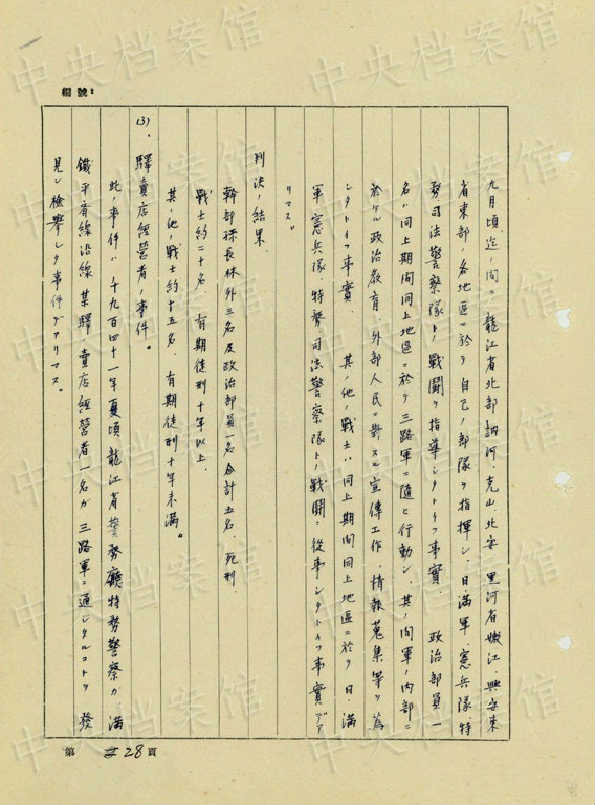 編號：
九月頃迄ノ間ニ龍江省北部訥河、克山、北安、黒河省嫩江、興安東
省東部ノ各地區ニ於テ自己ノ部隊ヲ指揮シ、日満軍、憲兵隊特
務司法警察隊トノ戰闘ヲ指導シタトイフ事實、政治部員一
名ハ同上期間同上地區ニ於テ三路軍ニ随ヒ行動シ、其ノ間軍ノ内部ニ
於ケル政治教育、外部人民ニ對スル宣傳工作、情報蒐集等ヲ為
シタトイフ事實、其ノ他ノ戰士ハ同上期間同上地區ニ於テ日満
軍憲兵隊、特務、司法警察隊トノ戰闘ニ從事シタトイフ事實デア
リマス。
判決ノ結果
幹部孫長林外三名及政治部員一名合計五名、死刑
戰士約二十名、有期徒刑十年以上、
其ノ他ノ戰士約十五名、有期徒刑十年未満。
(3)、驛賣店經營者ノ事件。
此ノ事件ハ千九百四十一年夏頃龍江省警務廳特務警察ガ、満
鐵平齊線沿線某驛賣店經營者一名ガ三路軍ニ通シタルコトヲ發
見シ檢擧シタ事件デアリマス。
第 28 頁
中央档案馆